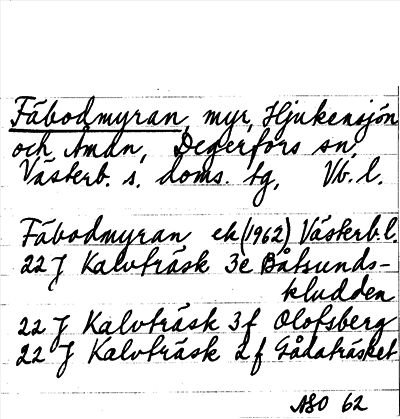 Fäbodmyran, myr, Hjukensjön
och Åmdn, Degerfors sn,
Västerb. s. doms. tg, Vb. l.
Fäbodmyran ek (1962) Västerb.l.
22 J Kalvträsk 3e Båtsunds-
kludden
22 J Kalvträsk 3f Olofsberg
22 J Kalvträsk 2f Gådaträsket
ABO 62